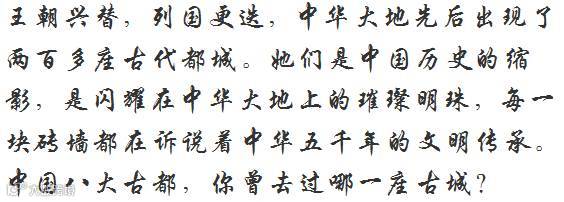 王朝兴替，列国更迭，中华大地先后出现了
两百多座古代都城。她们是中国历史的缩
影，是闪耀在中华大地上的璀璨明珠，每一
块砖墙都在诉说着中华五千年的文明传承。
中国八大古都，你曾去过哪一座古城？